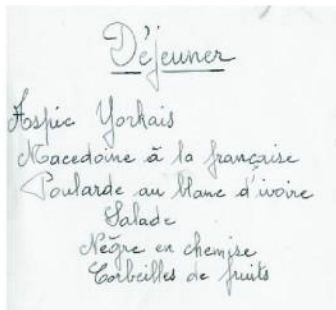 Déjeuner
Aspic Yorkais
Macedoine à la française
Poularde au blanc d'ivoire
Salade
Nègre en chemise
Corbeilles de fruits